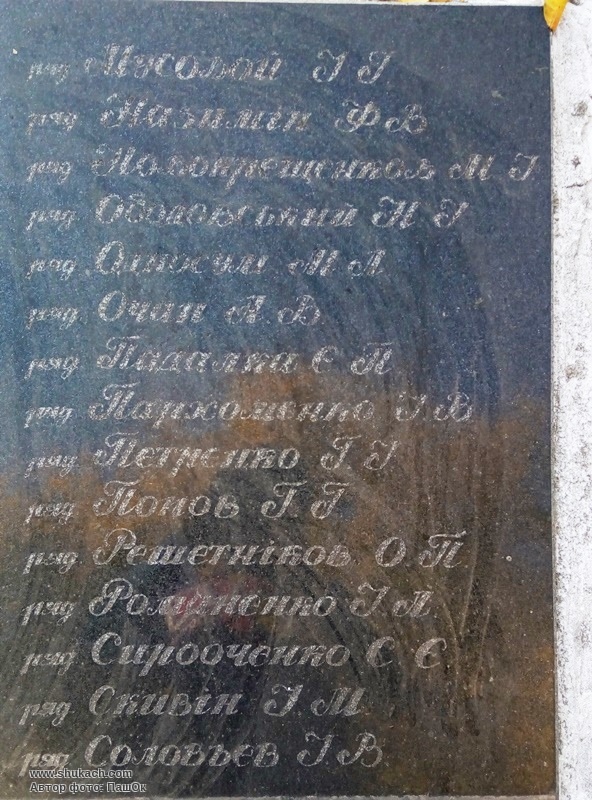 ряд. Мусовой І І
ряд. Назимін Ф В
ряд. Новокрещенков М І
ряд. Оболовський Н І
ряд. М А
ряд. Очан А. В.
ряд. Падалка Є П
ряд. Пархоменко І. В.
ряд. Петренко Г. І
ряд. Попов Г. Г
ряд. Решетніков О. П.
ряд. Романенко І. А.
ряд. Є Є
ряд. Скивін І. М.
ряд. Соловъев І. В.
www.shukach.com
Автор фото: ПашОк